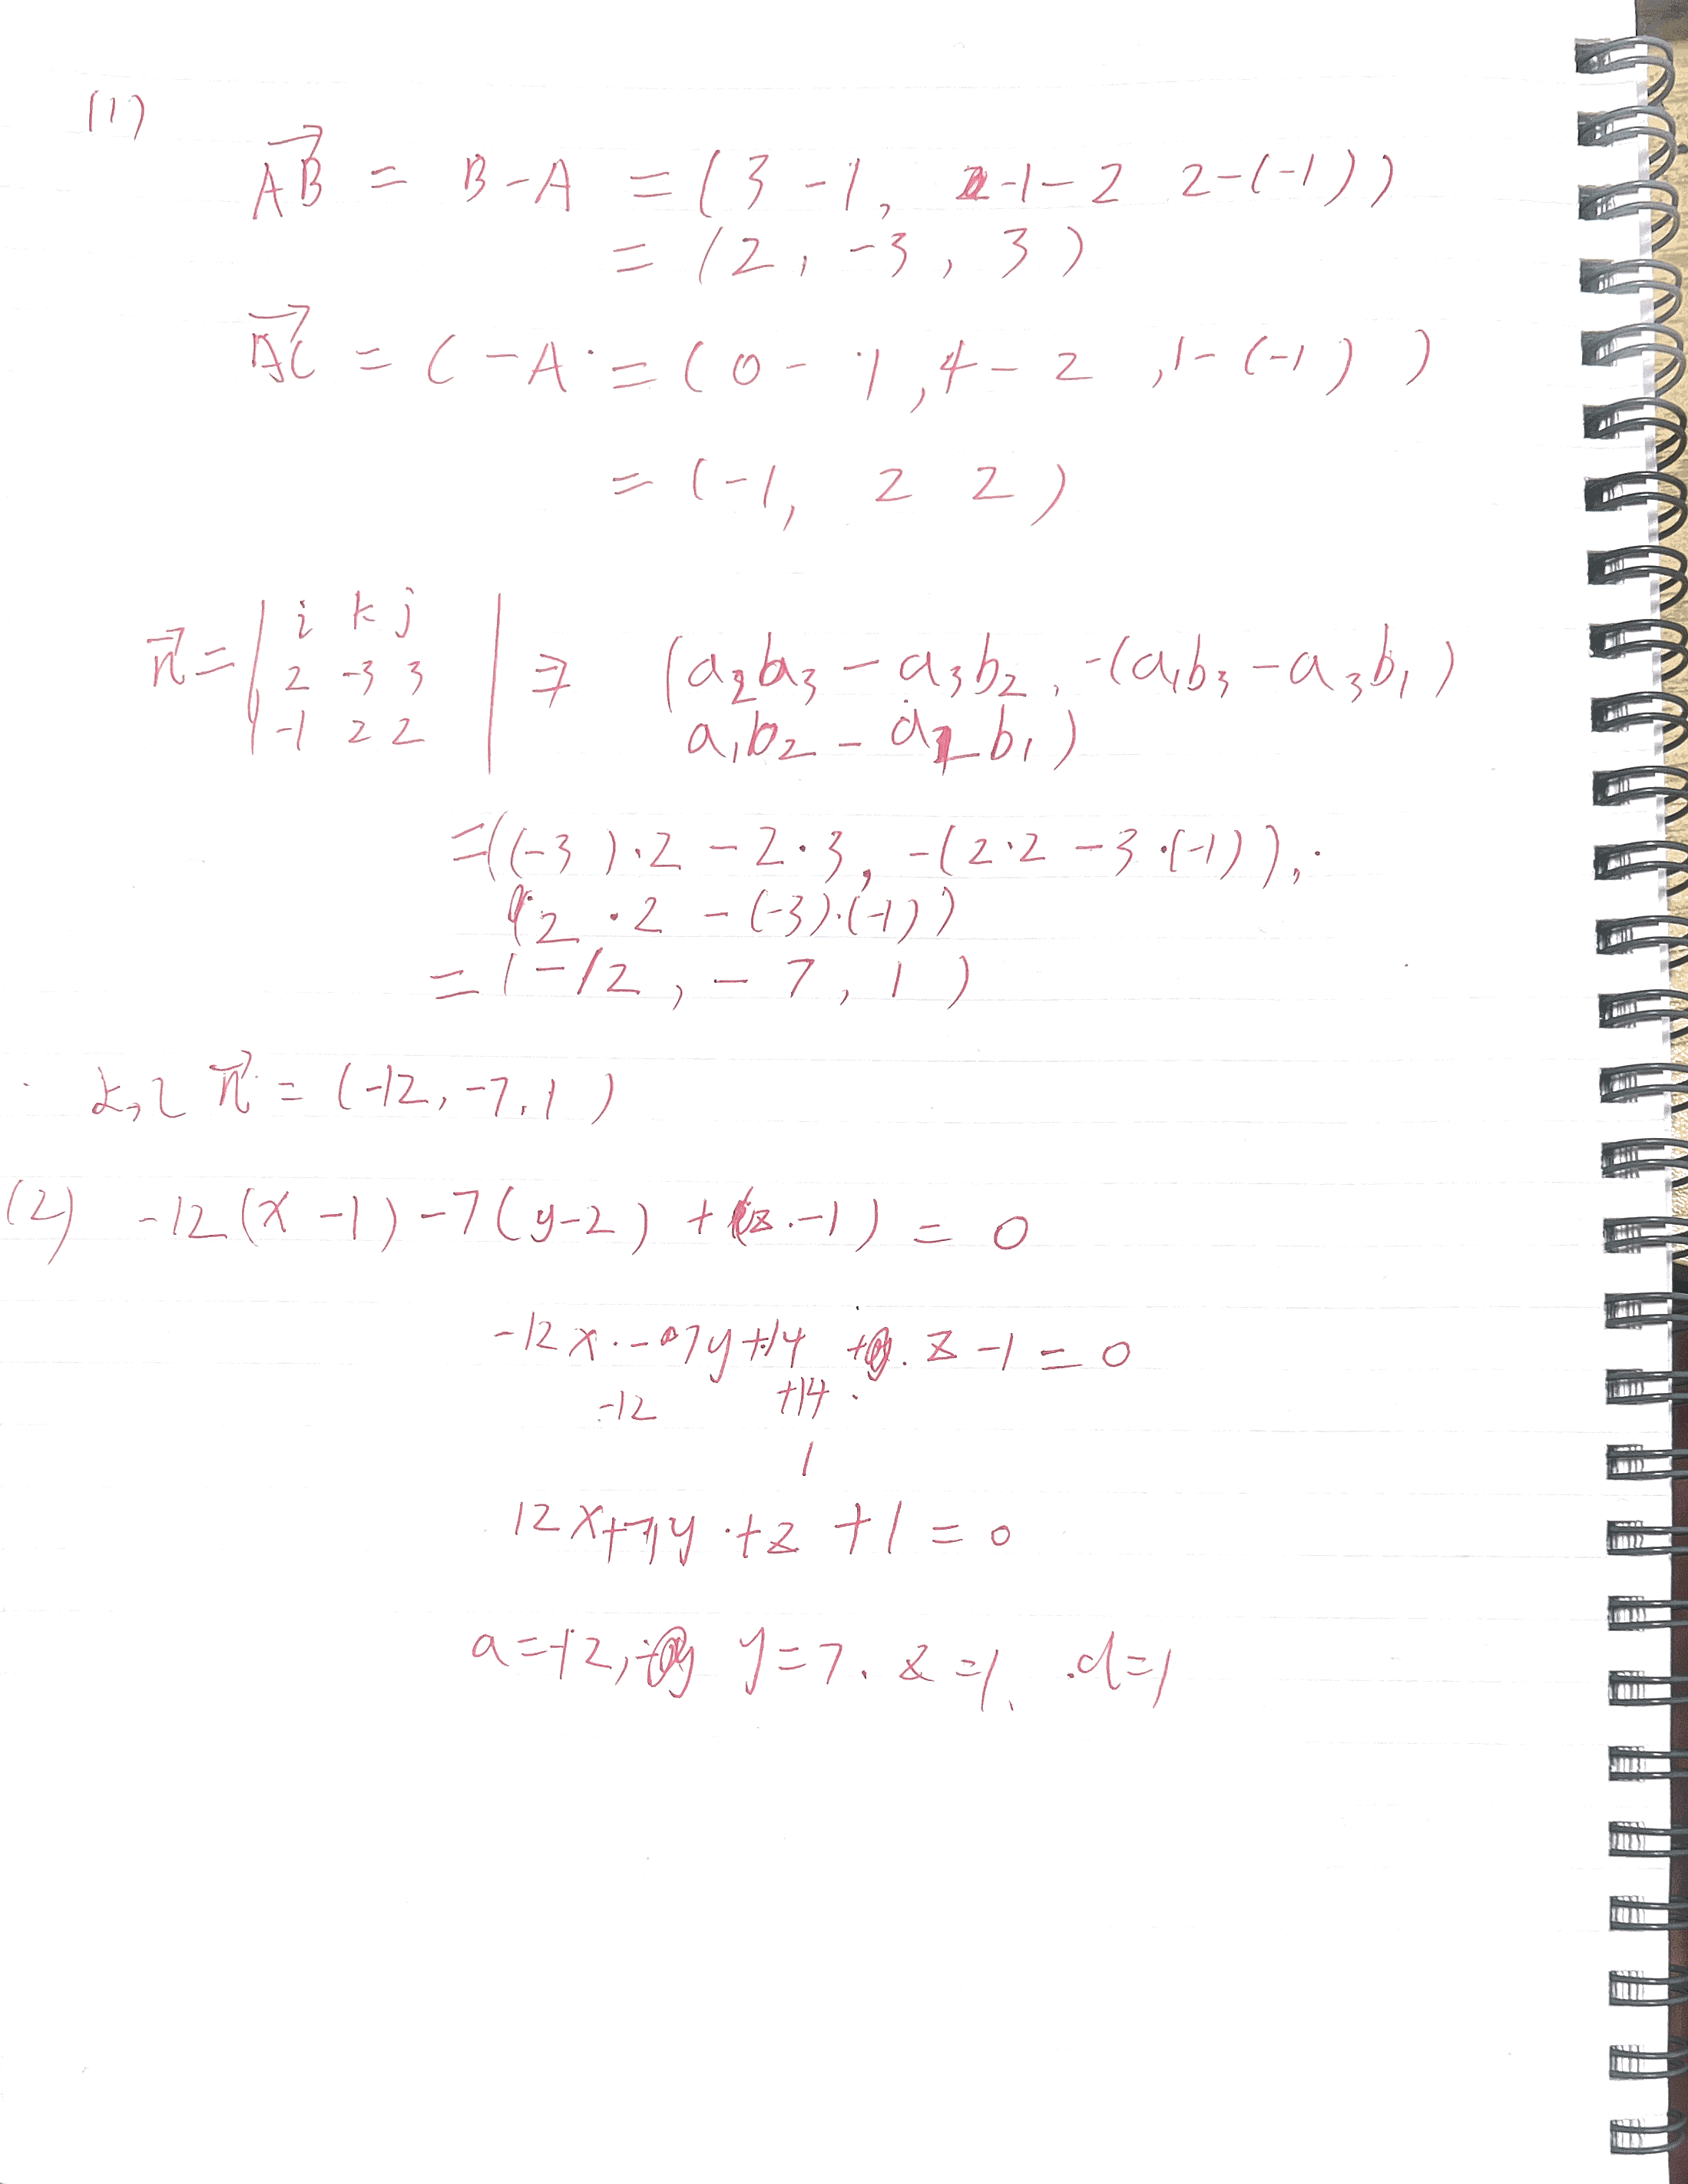 (1)
AB = B-A = (3-1, -1-2 2-(-1))
= (2, -3, 3)
AC = C-A = (0-1, 4-2, 1-(-1))
= (-1, 2 2)
n = | i k j |
2 -3 3
-1 2 2
⇒ (a2b3 - a3b2, -(a1b3 - a3b1)
a1b2 - a2b1)
= ((-3)・2 - 2・3, -(2・2 - 3・(-1)),
(2・2 - (-3)・(-1))
= (-12, -7, 1)
よって n = (-12, -7, 1)
(2) -12(x-1) -7(y-2) + (z-1) = 0
-12x - 7y + 14 + z - 1 = 0
-12 +14
1
12x + 7y + z + 1 = 0
a = 12, y = 7. z = 1. d = 1